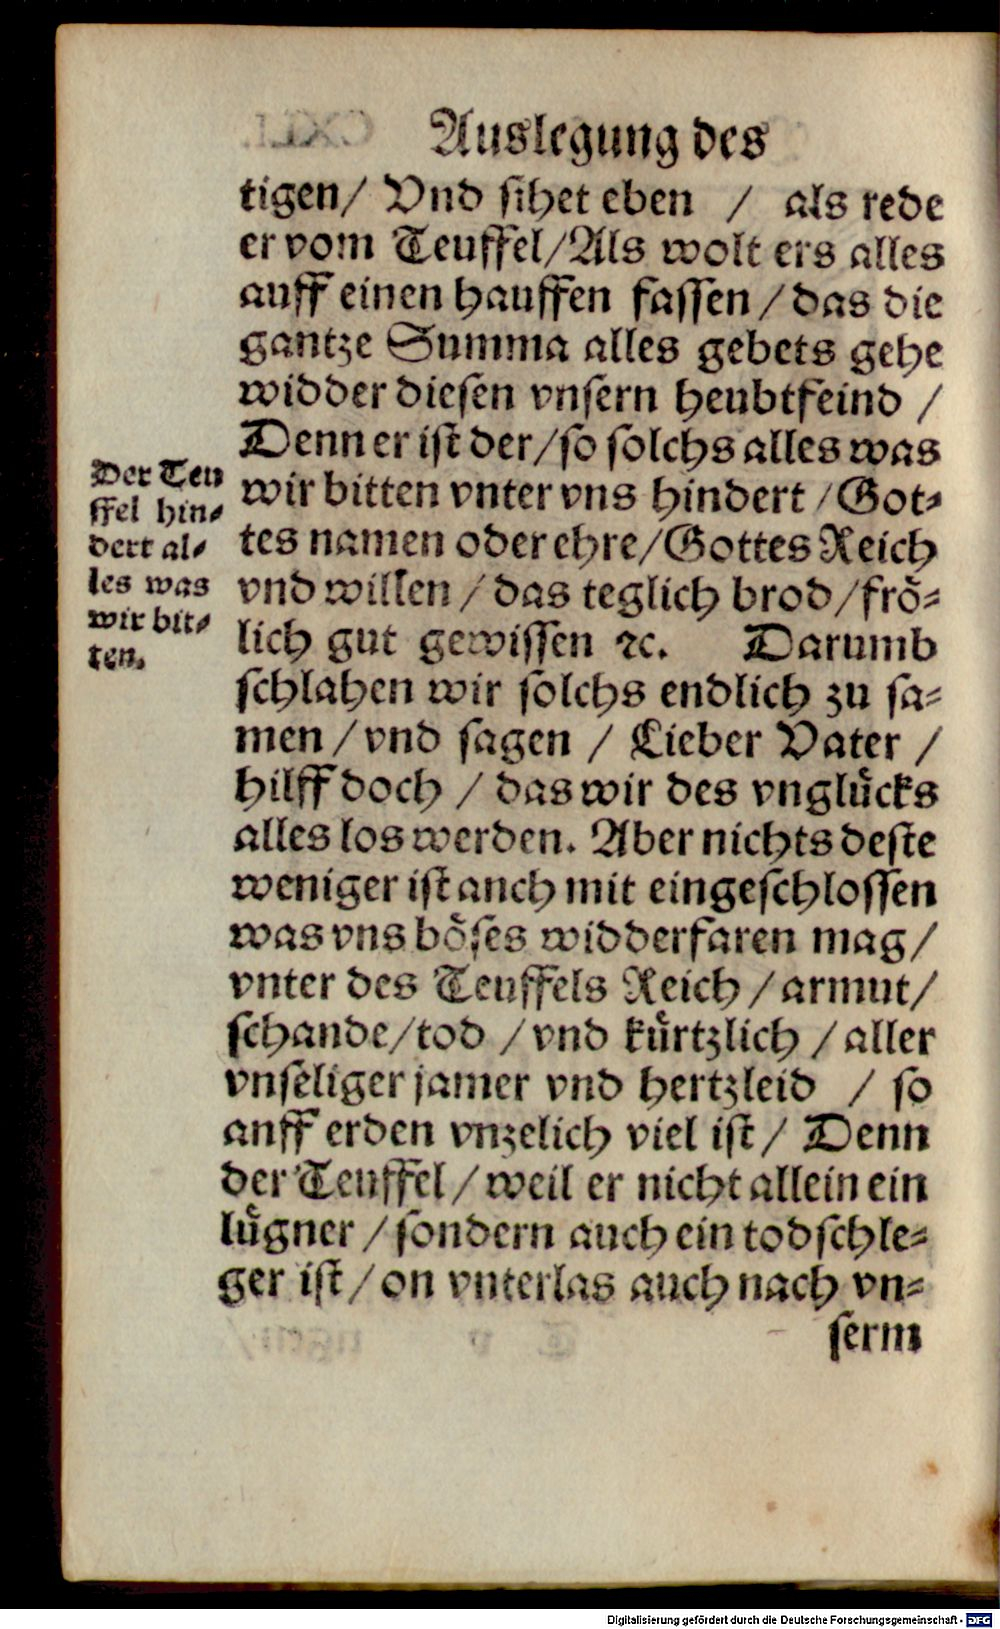 Auslegung des
tigen/ Vnd sihet eben / als rede
er vom Teuffel/Als wolt ers alles
auff einen hauffen fassen / das die
gantze Summa alles gebets gehe
widder diesen vnsern heubtfeind /
Denn er ist der/so solchs alles was
wir bitten vnter vns hindert /Got⸗
tes namen oder ehre/Gottes Reich
vnd willen / das teglich brod/froͤ⸗
lich gut gewissen ⁊c. Darumb
schlahen wir solchs endlich zu sa⸗
men /vnd sagen / Lieber Vater /
hilff doch / das wir des vngluͤcks
alles los werden. Aber nichts deste
weniger ist anch mit eingeschlossen
was vns boͤses widderfaren mag/
vnter des Teuffels Reich /armut/
schande/tod /vnd kuͤrtzlich /aller
vnseliger jamer vnd hertzleid / so
anff erden vnzelich viel ist/ Denn
der Teuffel /weil er nicht allein ein
luͤgner /sondern auch ein todschle⸗
ger ist/on vnterlas auch nach vn⸗
serm
Der Teu
ffel hin⸗
dert al⸗
les was
wir bit⸗
ten.
Digitalisierung gefördert durch die Deutsche Forschungsgemeinschaft - DFG